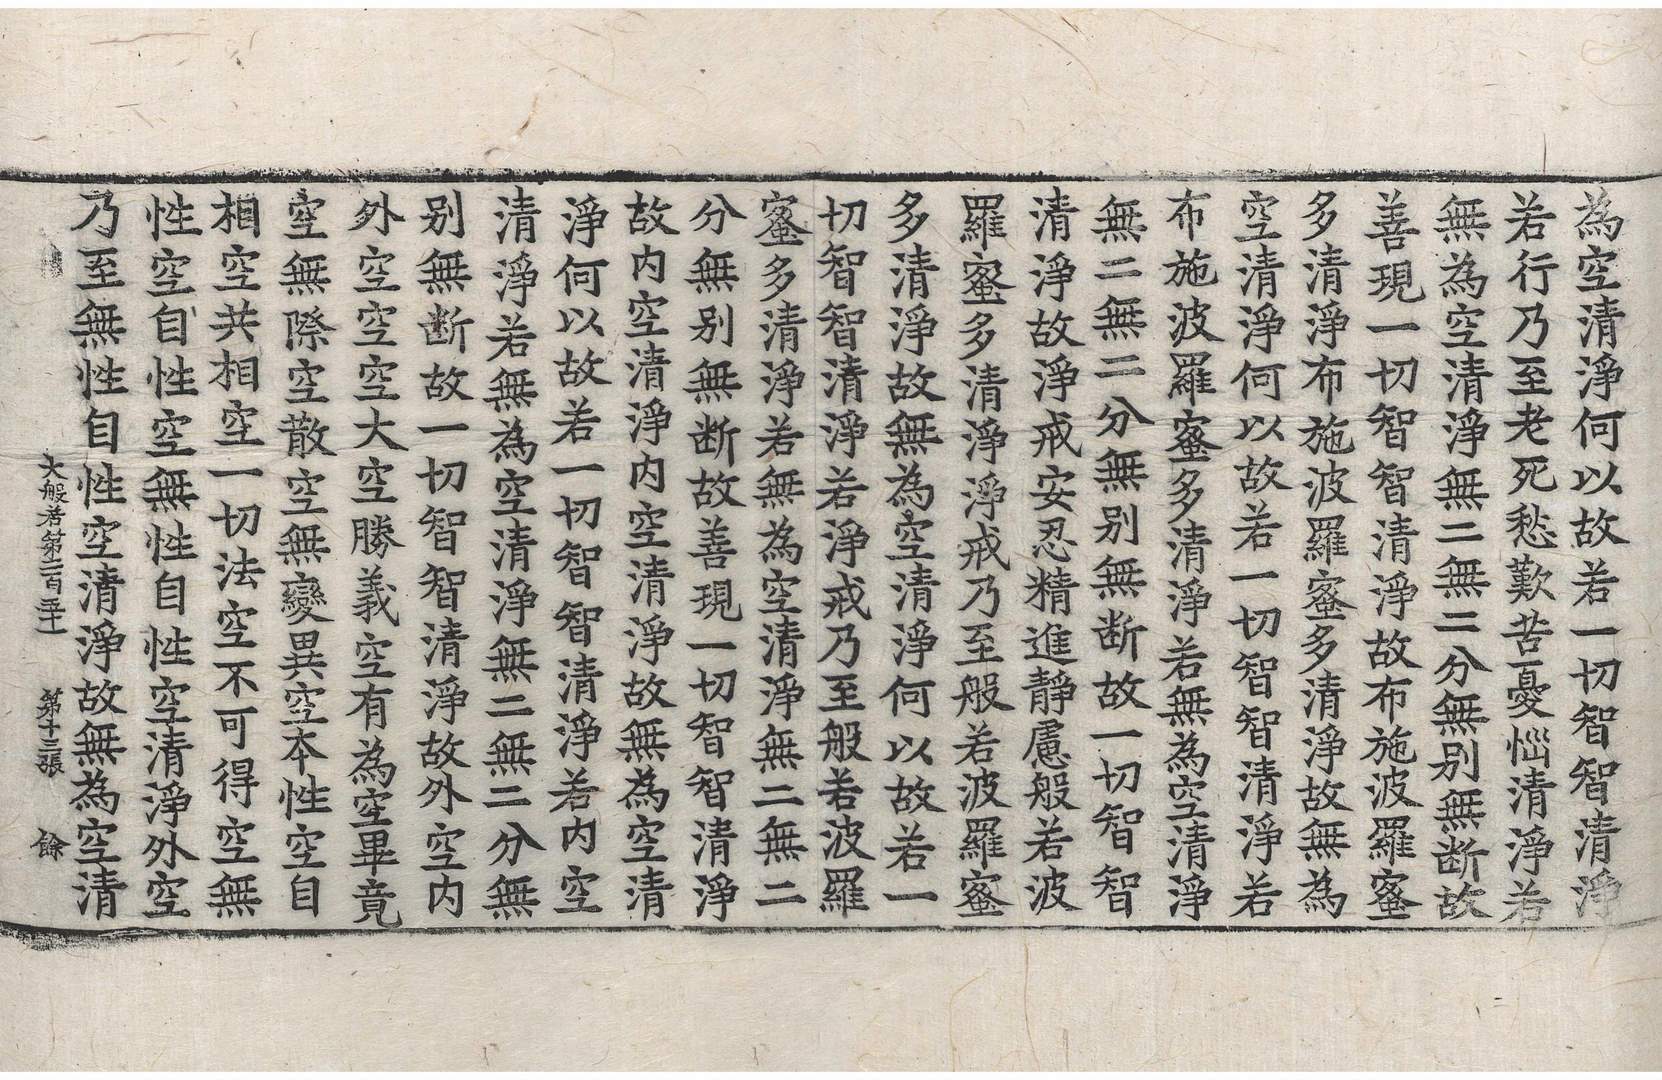 為空清淨何以故若一切智智清淨
若行乃至老死愁歎苦憂惱清淨若
無為空清淨無二無二分無別無断故
善現一切智智清淨故布施波羅蜜
多清淨布施波羅蜜多清淨故無為
空清淨何以故若一切智智清淨若
布施波羅蜜多清淨若無為空清淨
無二無二分無別無断故一切智智
清淨故淨戒安忍精進靜慮般若波
羅蜜多清淨淨戒乃至般若波羅蜜
多清淨故無為空清淨何以故若一
切智智清淨若淨戒乃至般若波羅
蜜多清淨若無為空清淨無二無二
分無別無断故善現一切智智清淨
故內空清淨內空清淨故無為空清
淨何以故若一切智智清淨若內空
清淨若無為空清淨無二無二分無
別無断故一切智智清淨故外空內
外空空空大空勝義空有為空畢竟
空無際空散空無變異空本性空自
相空共相空一切法空不可得空無
性空自性空無性自性空清淨外空
乃至無性自性空清淨故無為空清
大般若第二百五十一 第十三張 餘